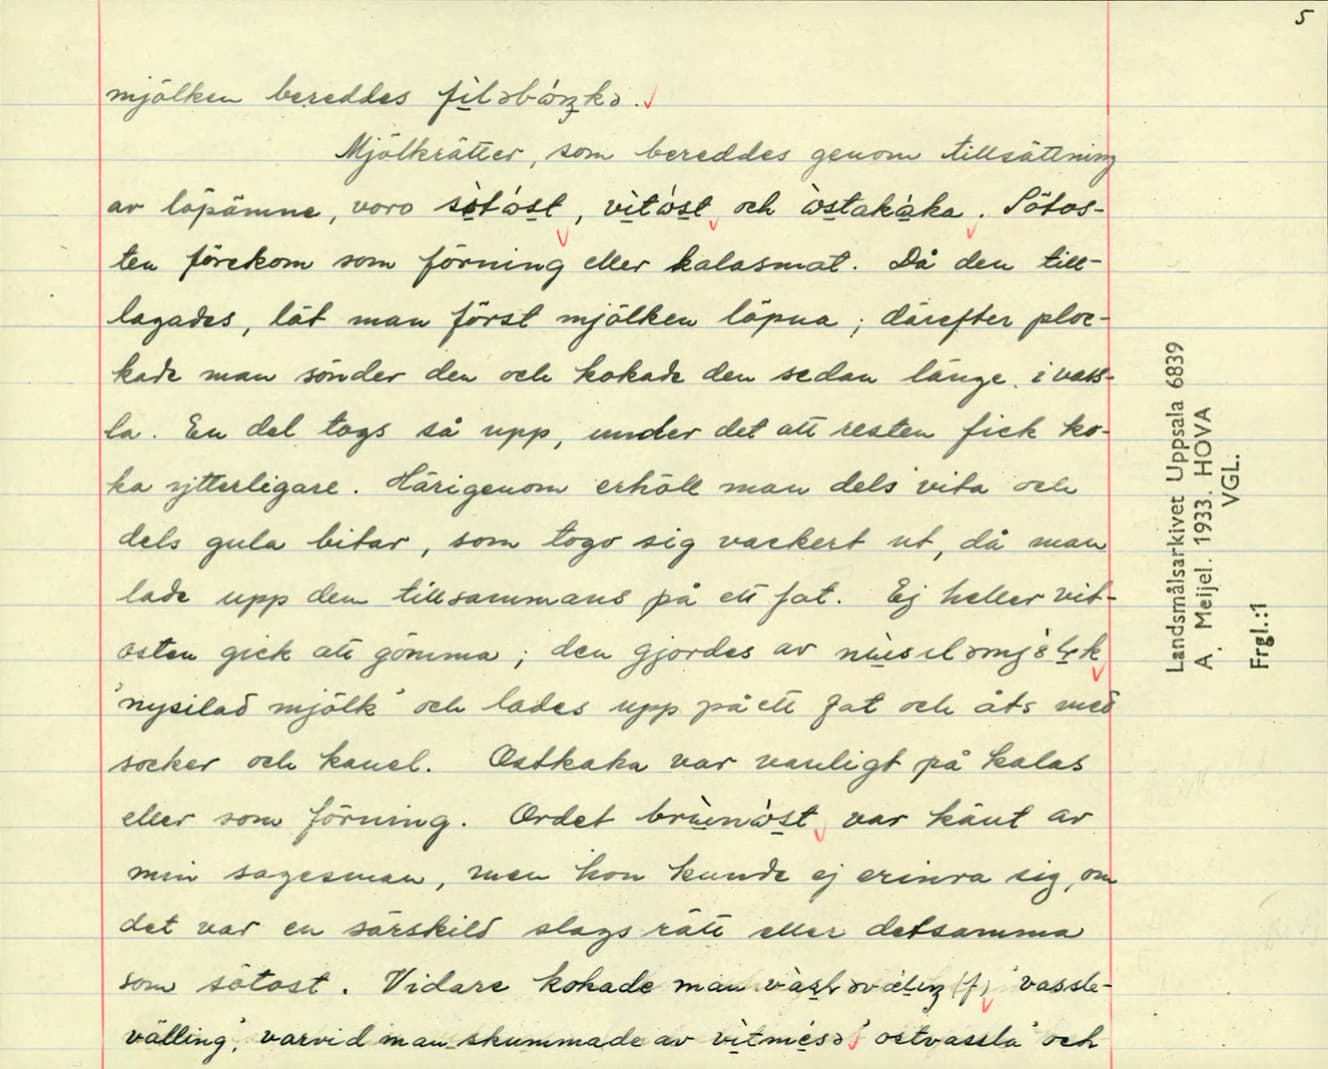 5
mjölken bereddes fìləbúŋkə.
Mjölkrätter, som bereddes genom tillsättning
av löpämne, voro sø̀tóst, vìtóst och òstakáka. Sötos-
ten förekom som förning eller kalasmat. Då den till-
lagades, lät man först mjölken löpna; därefter ploc-
kade man sönder den och kokade den sedan länge i vass-
la. En del togs så upp, under det att resten fick ko-
ka ytterligare. Härigenom erhöll man dels vita och
dels gula bitar, som togo sig vackert ut, då man
lade upp dem tillsammans på ett fat. Ej heller vit-
osten gick att gömma; den gjordes av
'nysilad mjölk' och lades upp på ett fat och åts med
socker och kanel. Ostkaka var vanligt på kalas
eller som förning. Ordet brùnóst var känt av
min sagesman, men hon kunde ej erinra sig, om
det var en särskild slags rätt eller detsamma
som sötost. Vidare kokade man (f) 'vassle-
välling', varvid man skummade av vìtmésə 'ostvassla' och
Landsmålsarkivet Uppsala 6839
A. Meijel. 1933. HOVA
VGL.
Frgl.:1